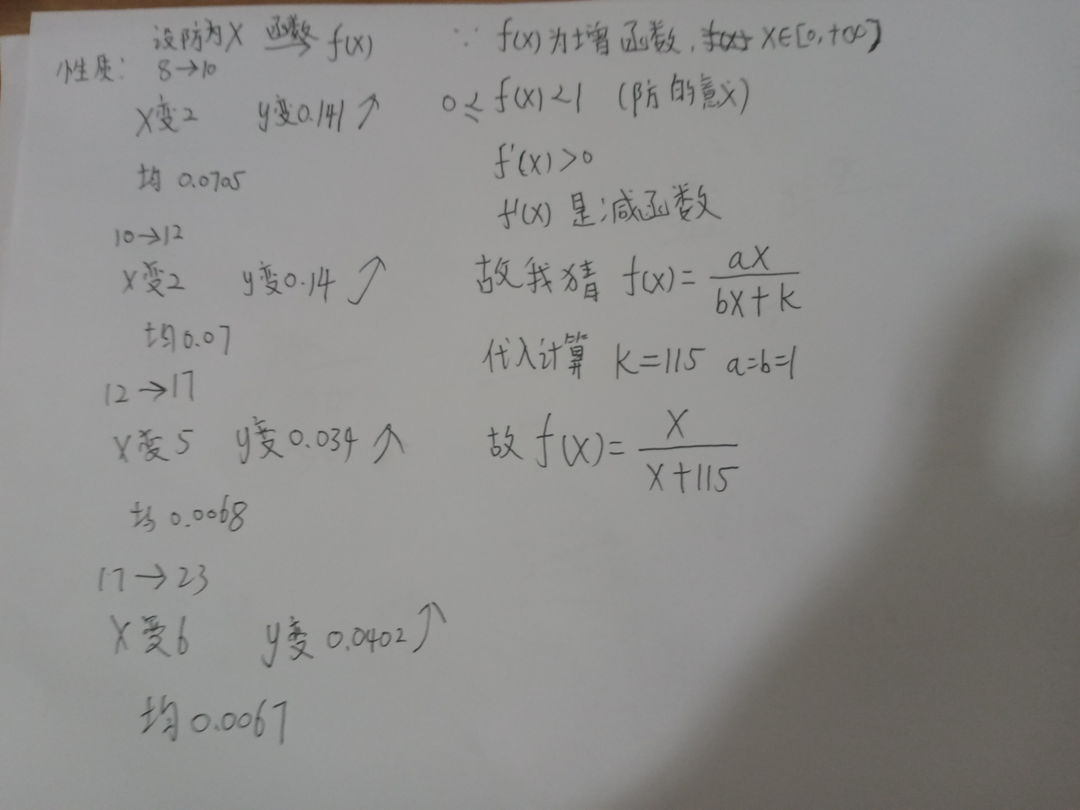 设防为X 函数→ f(x)
性质: 8→10
X变2 y变0.141↗
均 0.0705
10→12
X变2 y变0.14↗
均0.07
12→17
X变5 y变0.034↗
均 0.0068
17→23
X变6 y变0.0402↗
均0.0067
∵ f(x)为增函数, X∈[0,+∞)
0≤f(x)<1 (防的意义)
f'(x)>0
f'(x)是减函数
故我猜 f(x)=ax/(bx+k)
代入计算 k=115 a=b=1
故f(x)=x/(x+115)